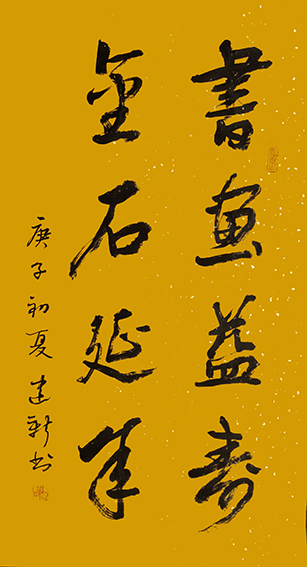 書畫益壽
金石延年
庚子初夏建新书